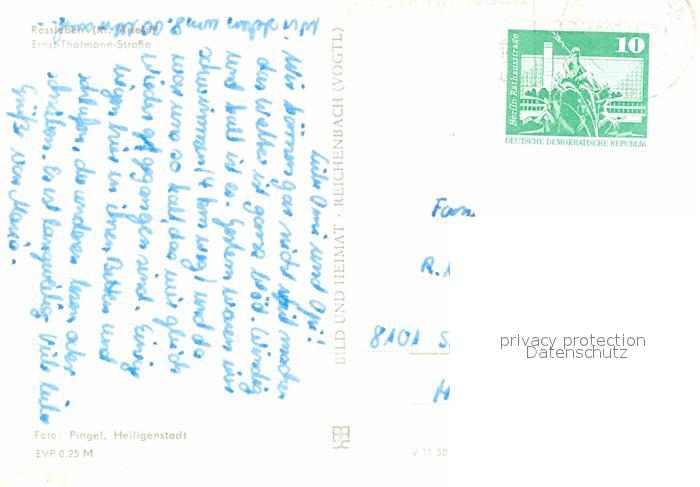 Rossleben (Kr. Artern)
Ernst-Thälmann-Straße
Liebe Omi und Opi!
Wir können gar nicht viel machen
das Wetter ist ganz blöd. Windig
und kalt ist es. Gestern waren wir
schwimmen (4 km weg) und da
war uns so kalt, das wir gleich
wieder gegangen sind. Einige
liegen hier in ihren Betten und
schlafen, die anderen lesen oder
schreiben. Es ist langweilig. Viele liebe
Grüße von Maria.
BILD UND HEIMAT · REICHENBACH (VOGTL)
Foto: Pingel, Heiligenstadt
EVP 0,25 M
V 11 50
Berlin-Rathausstraße
10
DEUTSCHE DEMOKRATISCHE REPUBLIK
Fam.
R.
8101 S
H
privacy protection
Datenschutz